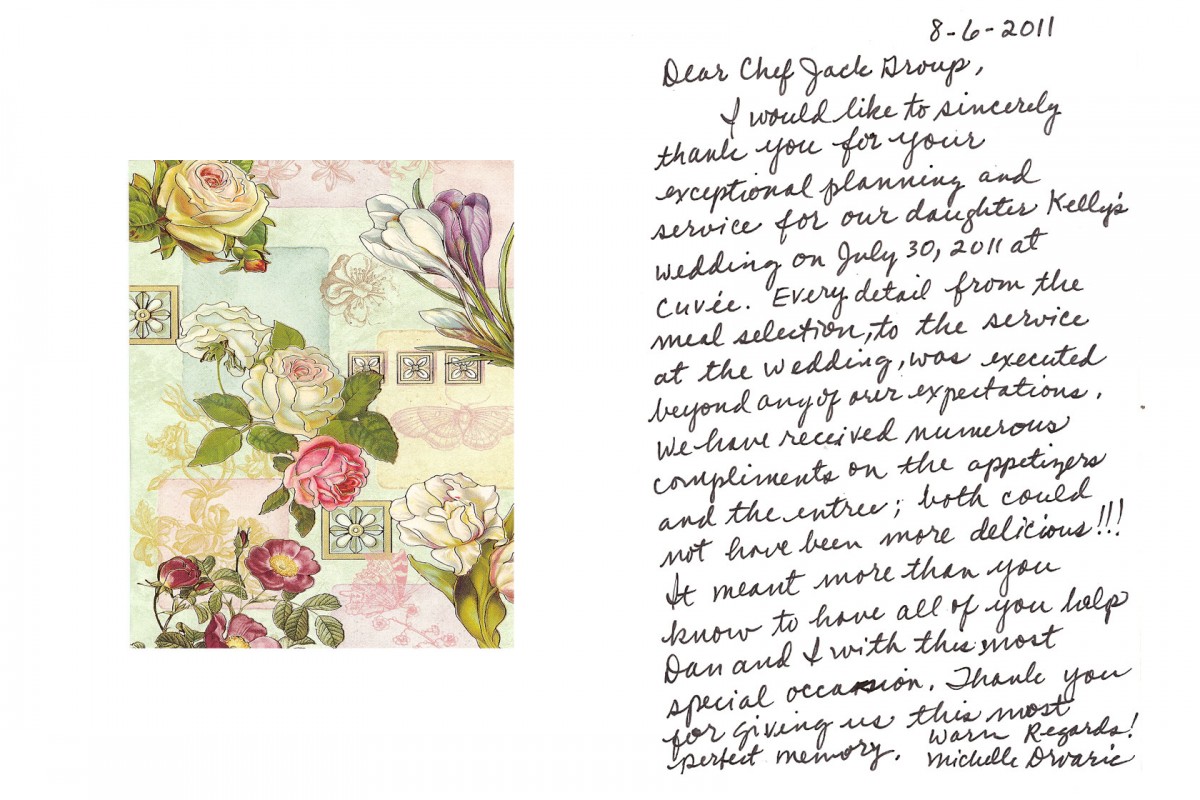 8-6-2011
Dear Chef Jack Group,
I would like to sincerely
thank you for your
exceptional planning and
service for our daughter Kelly's
wedding on July 30, 2011 at
Cuvée. Every detail from the
meal selection, to the service
at the wedding, was executed
beyond any of our expectations.
We have received numerous
compliments on the appetizers
and the entree; both could
not have been more delicious!!!
It meant more than you
know to have all of you help
Dan and I with this most
special occasion. Thank you
for giving us this most
perfect memory. Warm Regards!
Michelle Drvaric